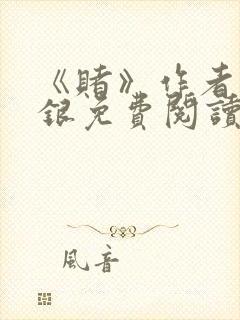 《賭》作者
銀免費閱讀
風音